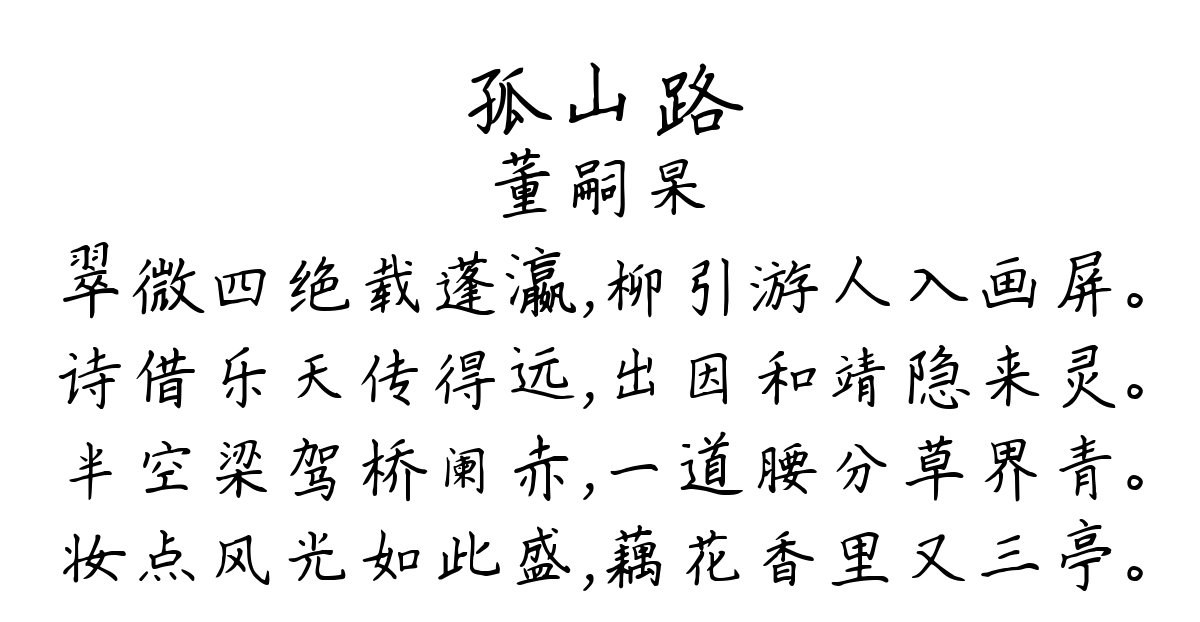 孤山路
董嗣杲
翠微四绝载蓬瀛,柳引游人入画屏。
诗借乐天传得远,出因和靖隐来灵。
半空梁驾桥阑赤,一道腰分草界青。
妆点风光如此盛,藕花香里又三亭。